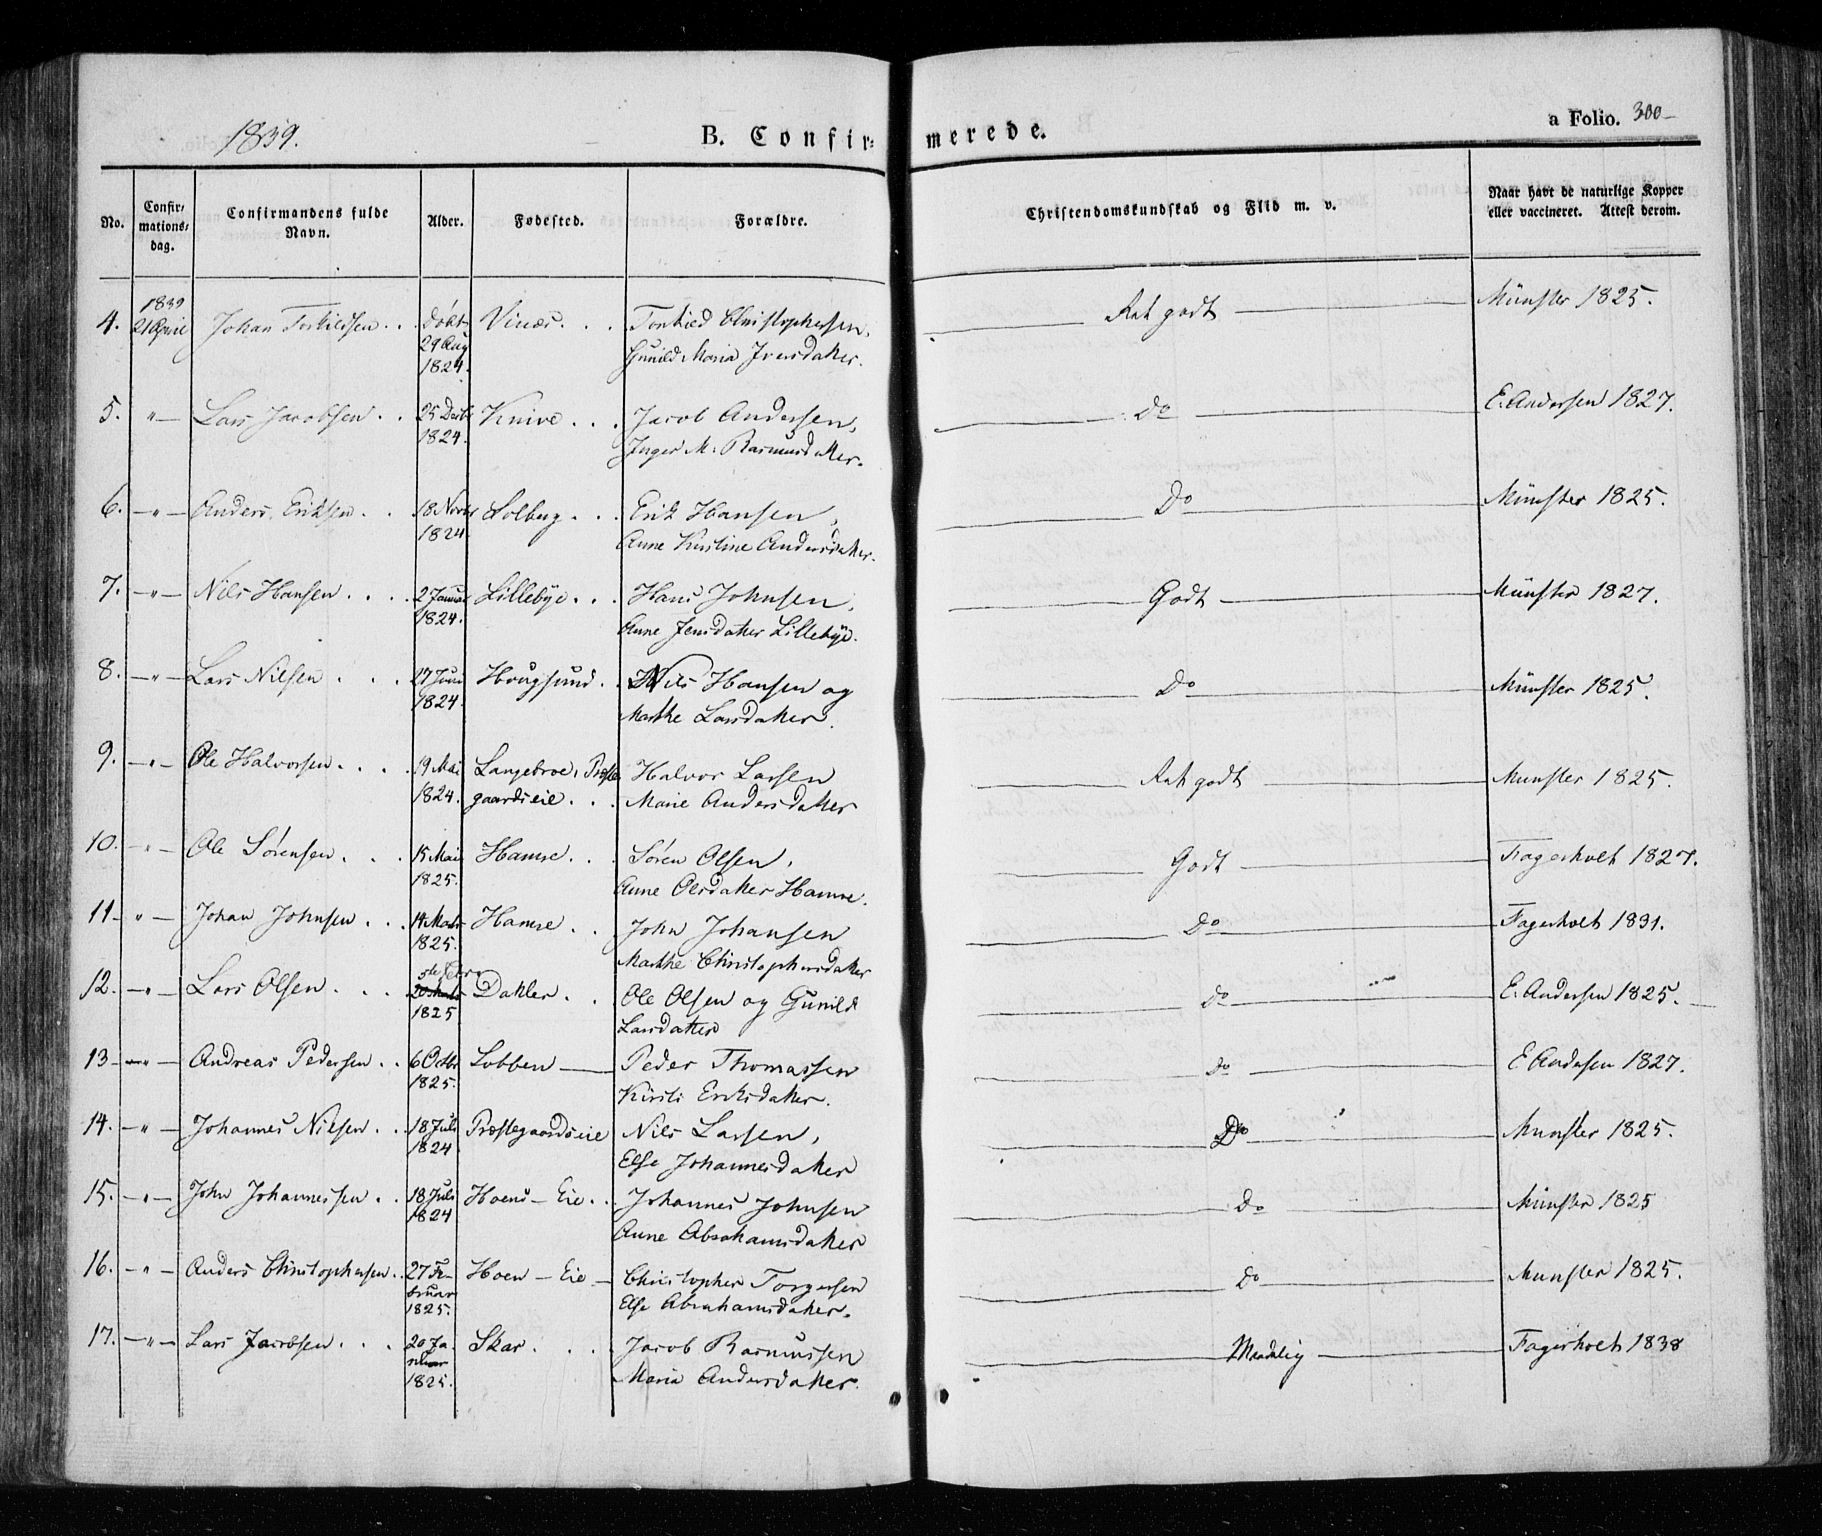 1839.
B. Confir-
merede.
a Folio. 300
No.
Confir-
mations-
dag.
Confirmandens fulde
Navn.
Alder.
Fødested.
Forældre.
Christendomskundskab og Flid m. v.
Naar havt de naturlige Kopper
eller vaccineret. Attest derom.
4. 1839 21 April Johan Torkildsen . . Døbt 29 Aug 1824. Vinæs . . . Torkild Christophersen, Gunild Maria Iversdatter. Ret godt Münster 1825.
5. " Lars Jacobsen . . 25 Decbr 1824. Knive . . . Jacob Andersen, Inger M. Rasmusdatter. Do E. Andersen 1827.
6. " Anders Eriksen . . 18 Novbr 1824 Solberg . . . Erik Hansen, Anne Kirstine Andersdatter. Do Münster 1825.
7. " Nils Hansen . . . . 2 Januar 1824. Lillebye . . . Hans Johnsen, Anne Jensdatter Lillebye. Godt Münster 1827.
8. " Lars Nilsen . . . 27 Juni 1824. Hougsund . . Nils Hansen og Marthe Larsdatter. Do Münster 1825.
9. " Ole Halvorsen . . . . 19 Mai 1824. Langebroe, Præste gaardseie . . . Halvor Larsen Marie Andersdatter Ret godt Munster 1825.
10. " Ole Sørensen . . . 15 Mai 1825. Hamre . . . Søren Olsen, Anne Olsdatter Hamre. Godt Fagerholt 1827.
11 " Johan Johnsen . . . 14 Marts 1825. Hamre . . John Johansen Marthe Christophersdatter Do Fagerholt 1831.
12. " Lars Olsen . . . 5te Febr 1825 Dahler . . Ole Olsen og Gunild Larsdatter Do E. Andersen 1825.
13 " Andreas Pedersen . . 6 Octbr 1825. Lobben Peder Thomassen Kirsti Eriksdatter. Do E Andersen 1827.
14. " Johannes Nilsen . . 18 Juli 1824 Præstegaardseie Nils Larsen, Else Johannesdatter Do Munster 1825.
15. " John Johannessen . . 18 Juli 1824 Hoens - Eie . . Johannes Johnsen Anne Abrahamsdatter Do Münster 1825
16. " Anders Christophersen . . 27 Fe- bruar 1825. Hoen - Eie Christopher Torgersen Else Abrahamsdatter. Do Munster 1825.
17. " Lars Jacobsen . . . 20 Ja- nuar 1825. Skar . . . . Jacob Rasmussen Maria Andersdatter. Maadelig Fagerholt 1838